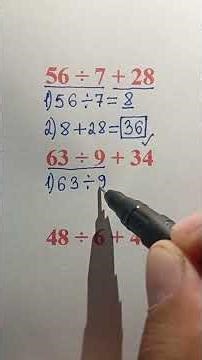 56 ÷ 7 + 28
1) 56 ÷ 7 = 8
2) 8 + 28 = 36 ✓
63 ÷ 9 + 34
1) 63 ÷ 9
48 ÷ 6 + 4